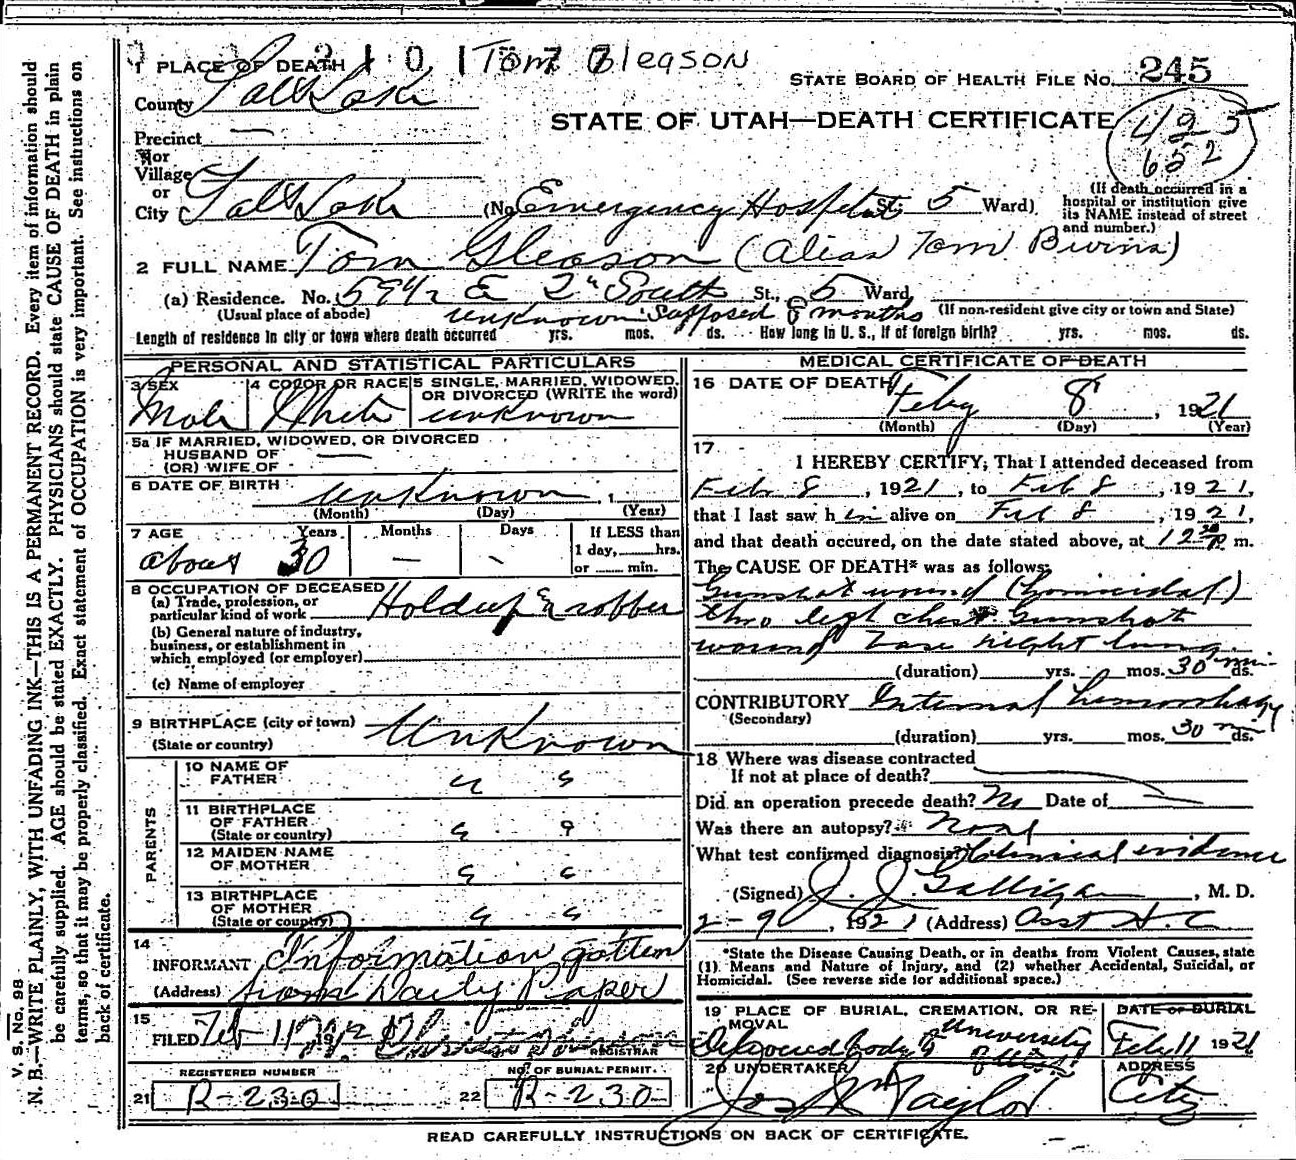 Tom Gleason
1 PLACE OF DEATH
STATE BOARD OF HEALTH FILE No. 245
County Salt Lake
STATE OF UTAH—DEATH CERTIFICATE
425
652
Precinct —
or
Village
or
City Salt Lake (No. Emergency Hospital St. 5 Ward)
(If death occurred in a hospital or institution give its NAME instead of street and number.)
2 FULL NAME Tom Gleason (alias Tom Burns)
(a) Residence. No. 594½ E 2nd South St., 5 Ward
(Usual place of abode) (If non-resident give city or town and State)
unknown supposed 8 months
Length of residence in city or town where death occurred yrs. mos. ds. How long in U. S., if of foreign birth? yrs. mos. ds.
PERSONAL AND STATISTICAL PARTICULARS
3 SEX Male
4 COLOR OR RACE White
5 SINGLE, MARRIED, WIDOWED, OR DIVORCED (WRITE the word) unknown
5a IF MARRIED, WIDOWED, OR DIVORCED
HUSBAND OF —
(OR) WIFE OF
6 DATE OF BIRTH unknown, 1
(Month) (Day) (Year)
7 AGE about 30 Years Months — Days -
If LESS than 1 day, hrs. or min.
8 OCCUPATION OF DECEASED
(a) Trade, profession, or particular kind of work Holdup & robber
(b) General nature of industry, business, or establishment in which employed (or employer)
(c) Name of employer
9 BIRTHPLACE (city or town)
(State or country) Unknown
PARENTS
10 NAME OF FATHER " "
11 BIRTHPLACE OF FATHER (State or country) " "
12 MAIDEN NAME OF MOTHER " "
13 BIRTHPLACE OF MOTHER (State or country) " "
14 INFORMANT Information gotten
(Address) from Daily Paper
15 FILED Feb 11
REGISTRAR
REGISTERED NUMBER
21 R-230
NO. OF BURIAL PERMIT.
22 R-230
MEDICAL CERTIFICATE OF DEATH
16 DATE OF DEATH Feby 8, 1921
(Month) (Day) (Year)
17 I HEREBY CERTIFY, That I attended deceased from
Feb 8, 1921, to Feb 8, 1921,
that I last saw him alive on Feb 8, 1921,
and that death occured, on the date stated above, at 12 P m.
The CAUSE OF DEATH* was as follows:
Gunshot wound (homicidal)
thro left chest Gunshot
wound base right lung.
(duration) yrs. mos. 30 min. ds.
CONTRIBUTORY Internal hemorrhage
(Secondary)
(duration) yrs. mos. 30 m ds.
18 Where was disease contracted
If not at place of death?
Did an operation precede death? No Date of —
Was there an autopsy?
What test confirmed diagnosis? Clinical evidence
(Signed) J. J. Galligan, M. D.
2-9, 1921 (Address) Asst H. C
*State the Disease Causing Death, or in deaths from Violent Causes, state
(1) Means and Nature of Injury, and (2) whether Accidental, Suicidal, or
Homicidal. (See reverse side for additional space.)
19 PLACE OF BURIAL, CREMATION, OR REMOVAL
Delivered body to University of Utah
DATE OF BURIAL
Feby 11 1921
20 UNDERTAKER
Jos Wm Taylor
ADDRESS
City
READ CAREFULLY INSTRUCTIONS ON BACK OF CERTIFICATE.
V. S. No. 98
N. B.—WRITE PLAINLY, WITH UNFADING INK—THIS IS A PERMANENT RECORD. Every item of information should
be carefully supplied. AGE should be stated EXACTLY. PHYSICIANS should state CAUSE OF DEATH in plain
terms, so that it may be properly classified. Exact statement of OCCUPATION is very important. See instructions on
back of certificate.